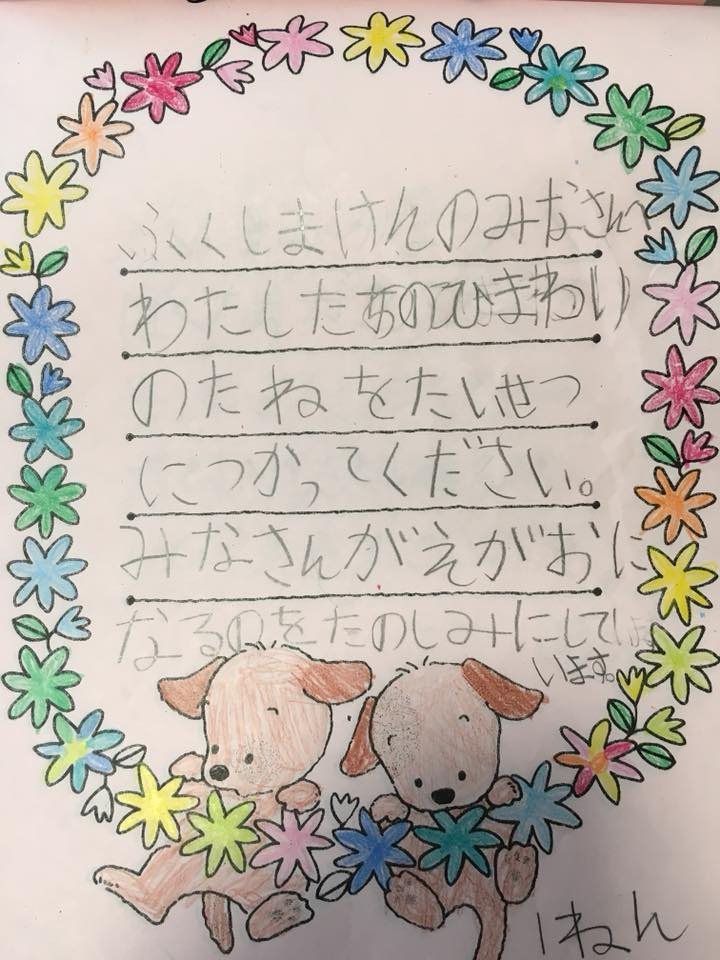 ふくしまけんのみなさんへ
わたしたちのひまわり
のたねをたいせつ
につかってください。
みなさんがえがおに
なるのをたのしみにして
います。
1ねん